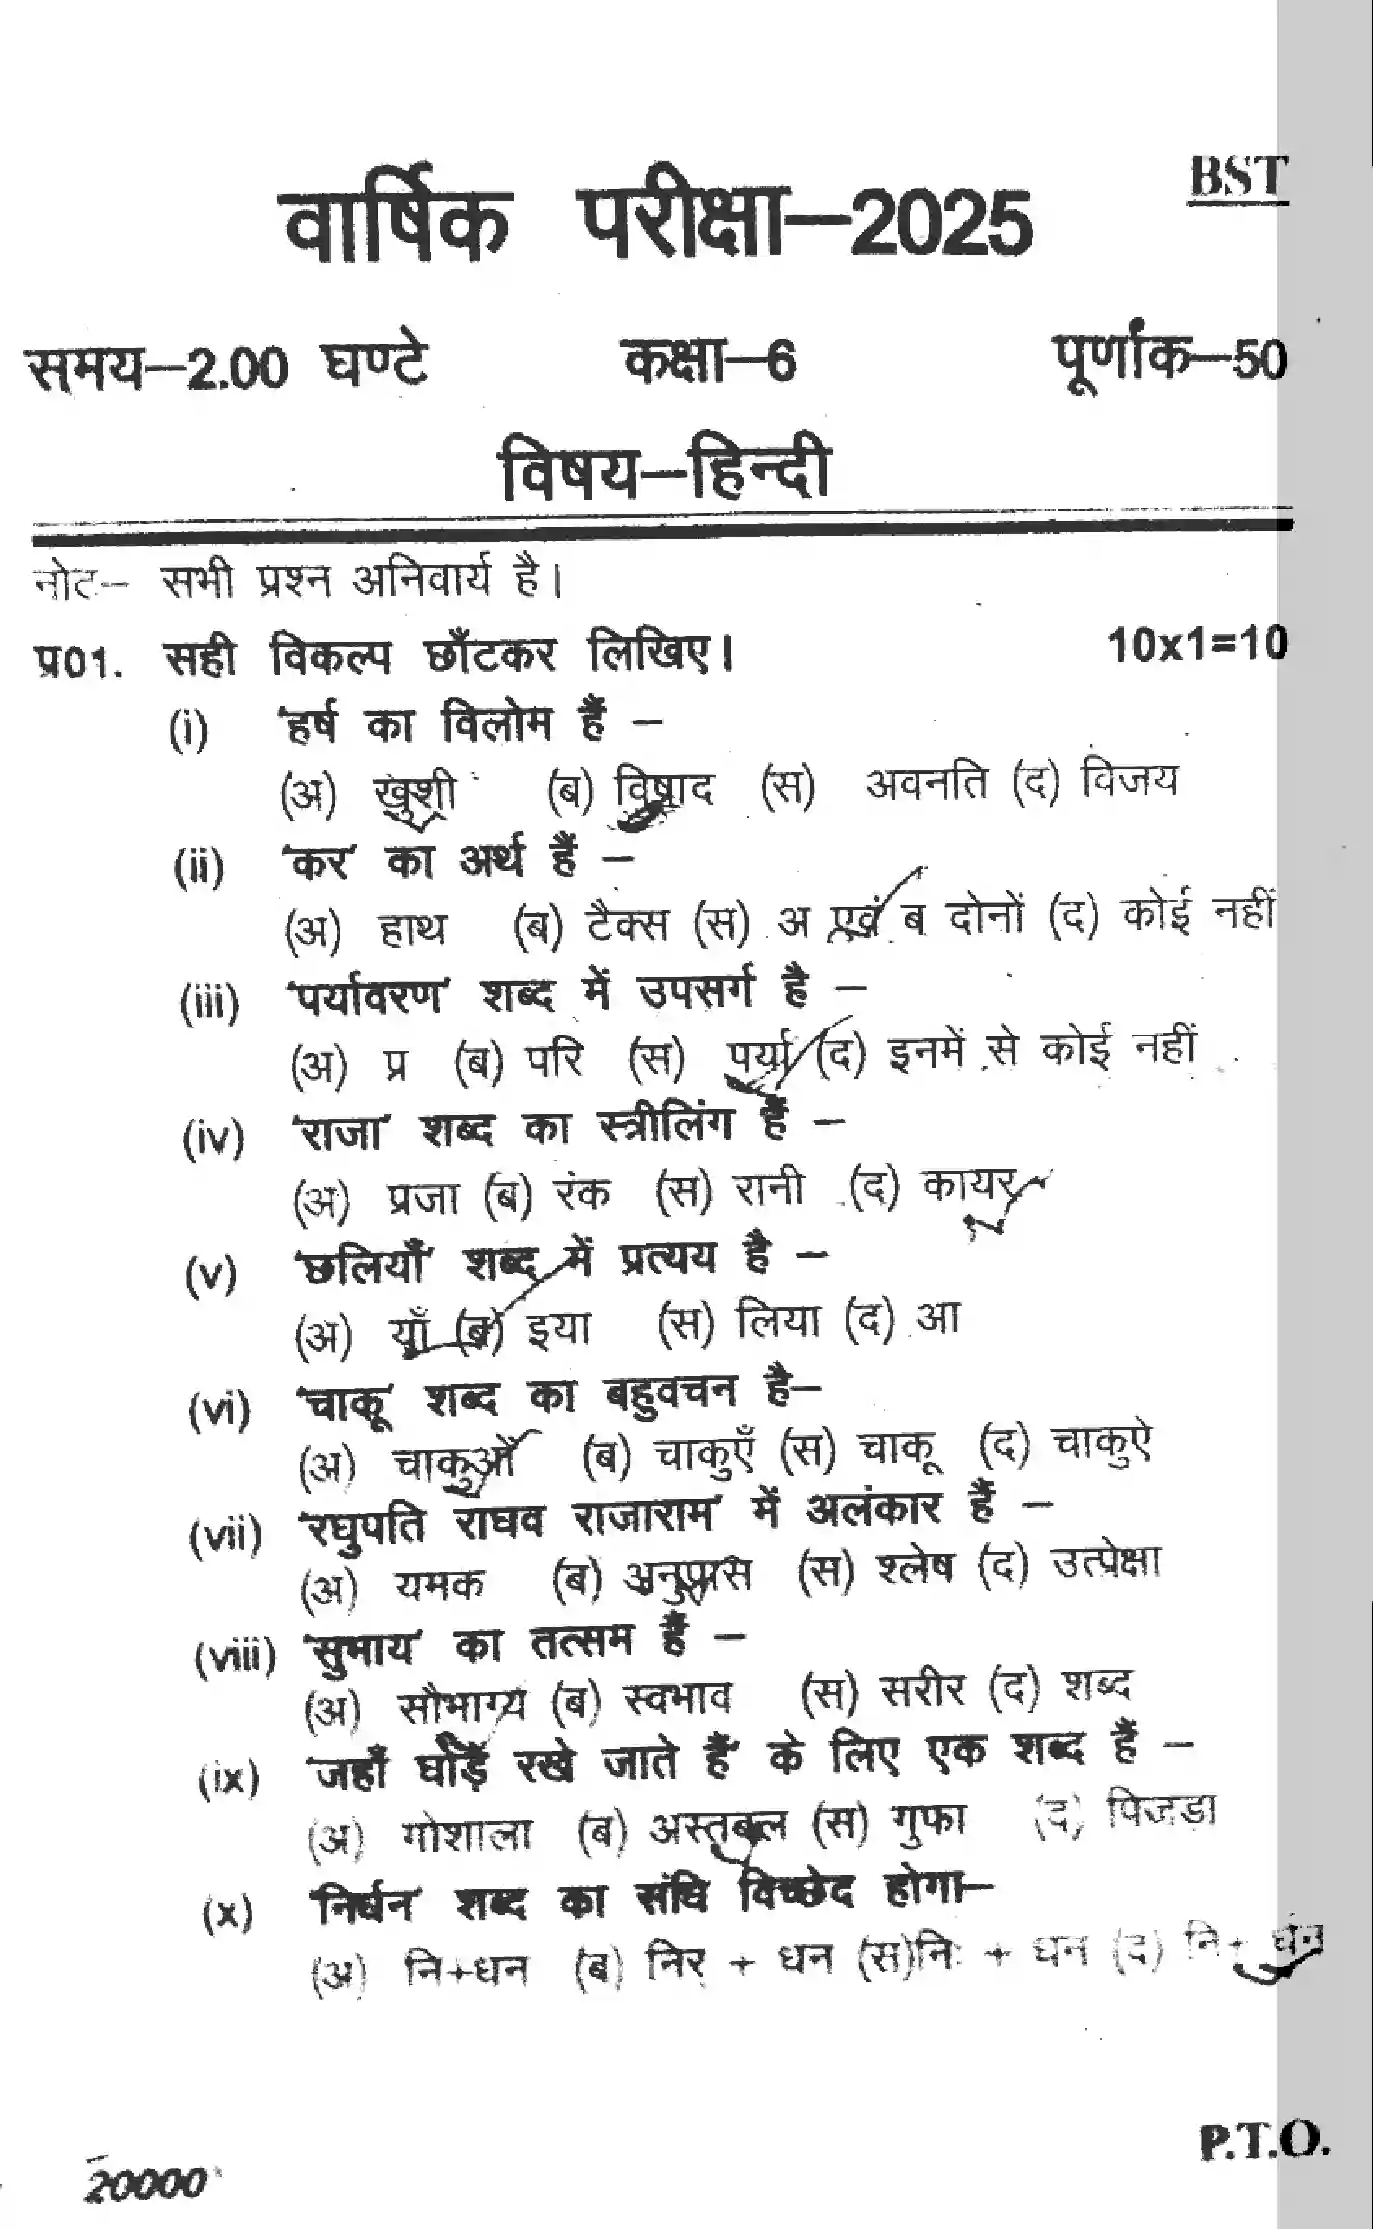 BST
वार्षिक परीक्षा–2025
समय–2.00 घण्टे कक्षा–6 पूर्णांक–50
विषय–हिन्दी
नोट:– सभी प्रश्न अनिवार्य है।
प्र01. सही विकल्प छाँटकर लिखिए। 10x1=10
(i) 'हर्ष का विलोम हैं –
(अ) खुशी (ब) विषाद (स) अवनति (द) विजय
(ii) 'कर' का अर्थ हैं –
(अ) हाथ (ब) टैक्स (स) अ एवं ब दोनों (द) कोई नहीं
(iii) 'पर्यावरण' शब्द में उपसर्ग है –
(अ) प्र (ब) परि (स) पर्या (द) इनमें से कोई नहीं
(iv) 'राजा' शब्द का स्त्रीलिंग हैं –
(अ) प्रजा (ब) रंक (स) रानी (द) कायर
(v) 'छलियाँ' शब्द में प्रत्यय है –
(अ) याँ (ब) इया (स) लिया (द) आ
(vi) 'चाकू' शब्द का बहुवचन है–
(अ) चाकुओं (ब) चाकुएँ (स) चाकू (द) चाकुऐ
(vii) 'रघुपति राघव राजाराम' में अलंकार हैं –
(अ) यमक (ब) अनुप्रास (स) श्लेष (द) उत्प्रेक्षा
(viii) 'सुभाय' का तत्सम हैं –
(अ) सौभाग्य (ब) स्वभाव (स) सरीर (द) शब्द
(ix) 'जहाँ घोड़ें रखे जाते हैं' के लिए एक शब्द हैं –
(अ) गोशाला (ब) अस्तबल (स) गुफा (द) पिजडा
(x) 'निर्धन' शब्द का संधि विच्छेद होगा–
(अ) नि+धन (ब) निर् + धन (स)निः + धन (द) नि+ धन
P.T.O.
20000